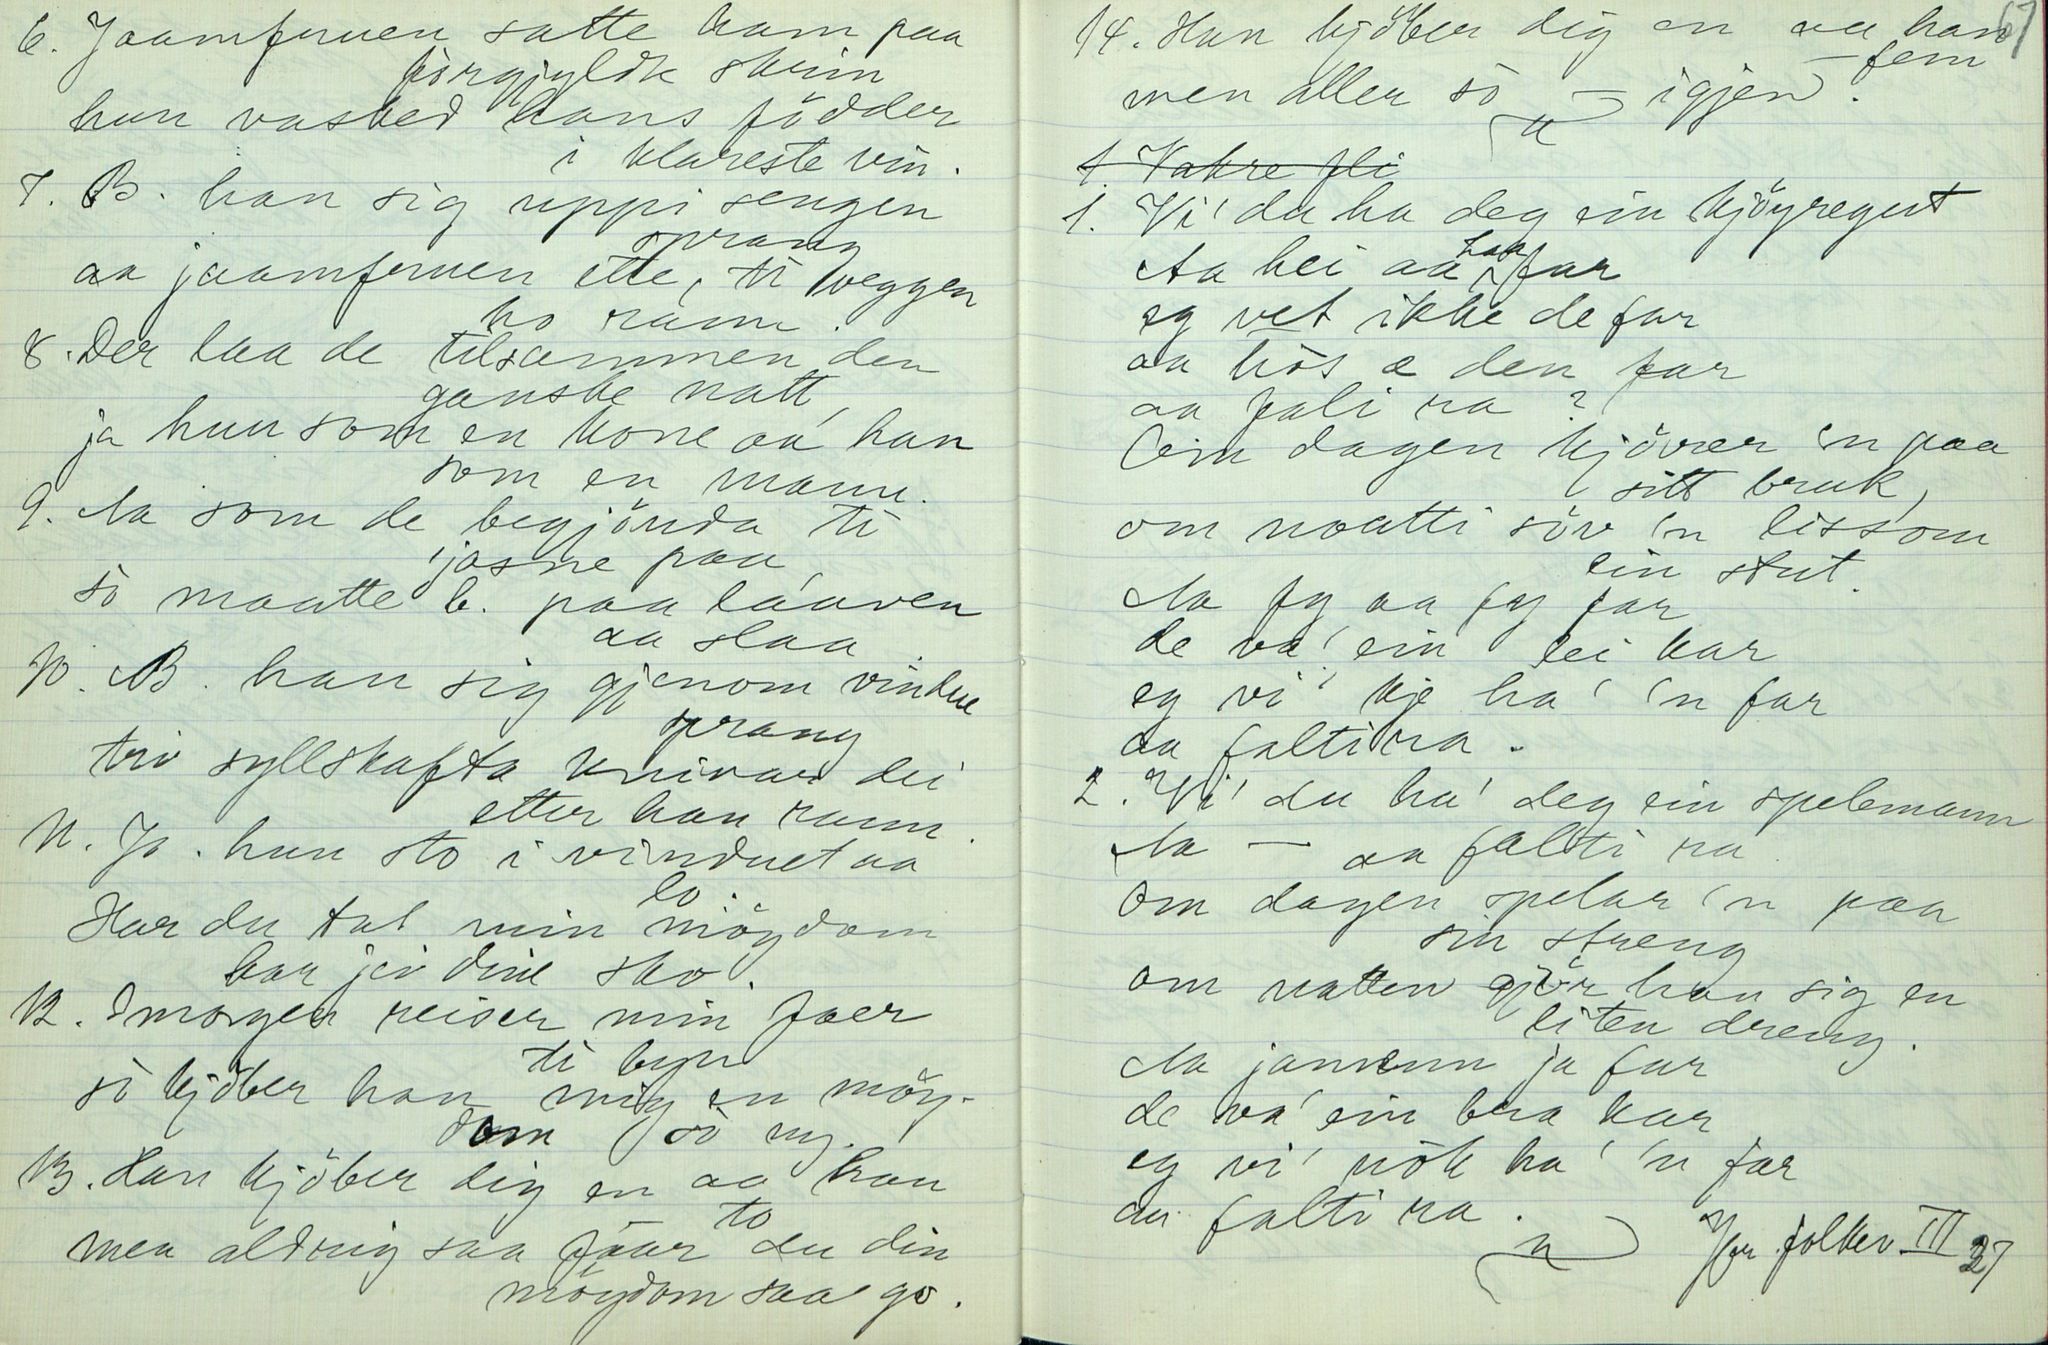 6. Jaamfruen satte ham paa
forgjyldte skrin
hun vasked hans födder
i klareste vin.
7. B. han sig uppi sengen
sprang
aa jaamfruen ette, ti veggen
ho rann.
8. Der laa de tilsammen den
ganske natt,
ja hun som en kone aa han
som en mann.
9. Aa som de begjönda ti
jasne paa
så maatte b. paa lååven
aa slaa.
10. B. han sig gjenom vindue
sprang
tri syllskafta knivar dei
etter han rann.
11. Ja. hun sto i vinduet aa
lo.
Har du tat min möydom
har jei dine sko.
12. Imorgen reiser min faer
ti byn
så kjöber han mig en möy-
dom så ny.
13. Han kjöber dig en aa han
to
men aldrig saa får du din
möydom saa go.
67
14. Han kjöber dig en aa han
– fem
men aller så – igjen.
1. Vakre fli
1. Vi' du ha deg ein kjöyregut
Aa hei aa haa far
eg vet ikke de far
aa hòs æ den far
aa fali ra?
Om dagen kjörer 'n paa
sitt bruk,
om noatti söv 'n lissom
ein stut.
Aa fy aa fy far
de va' ein lei kar
eg vi' kje ha' 'n far
aa falti ra.
2. Vi' du ha' deg ein spelemann
Aa — aa falti ra
om dagen spelar 'n paa
sin streng
om natten gjör han sig en
liten dreng.
Aa jamenn ja far
de va' ein bra kar
eg vi' nòk ha' 'n far
aa falti ra.
folkev. III 27